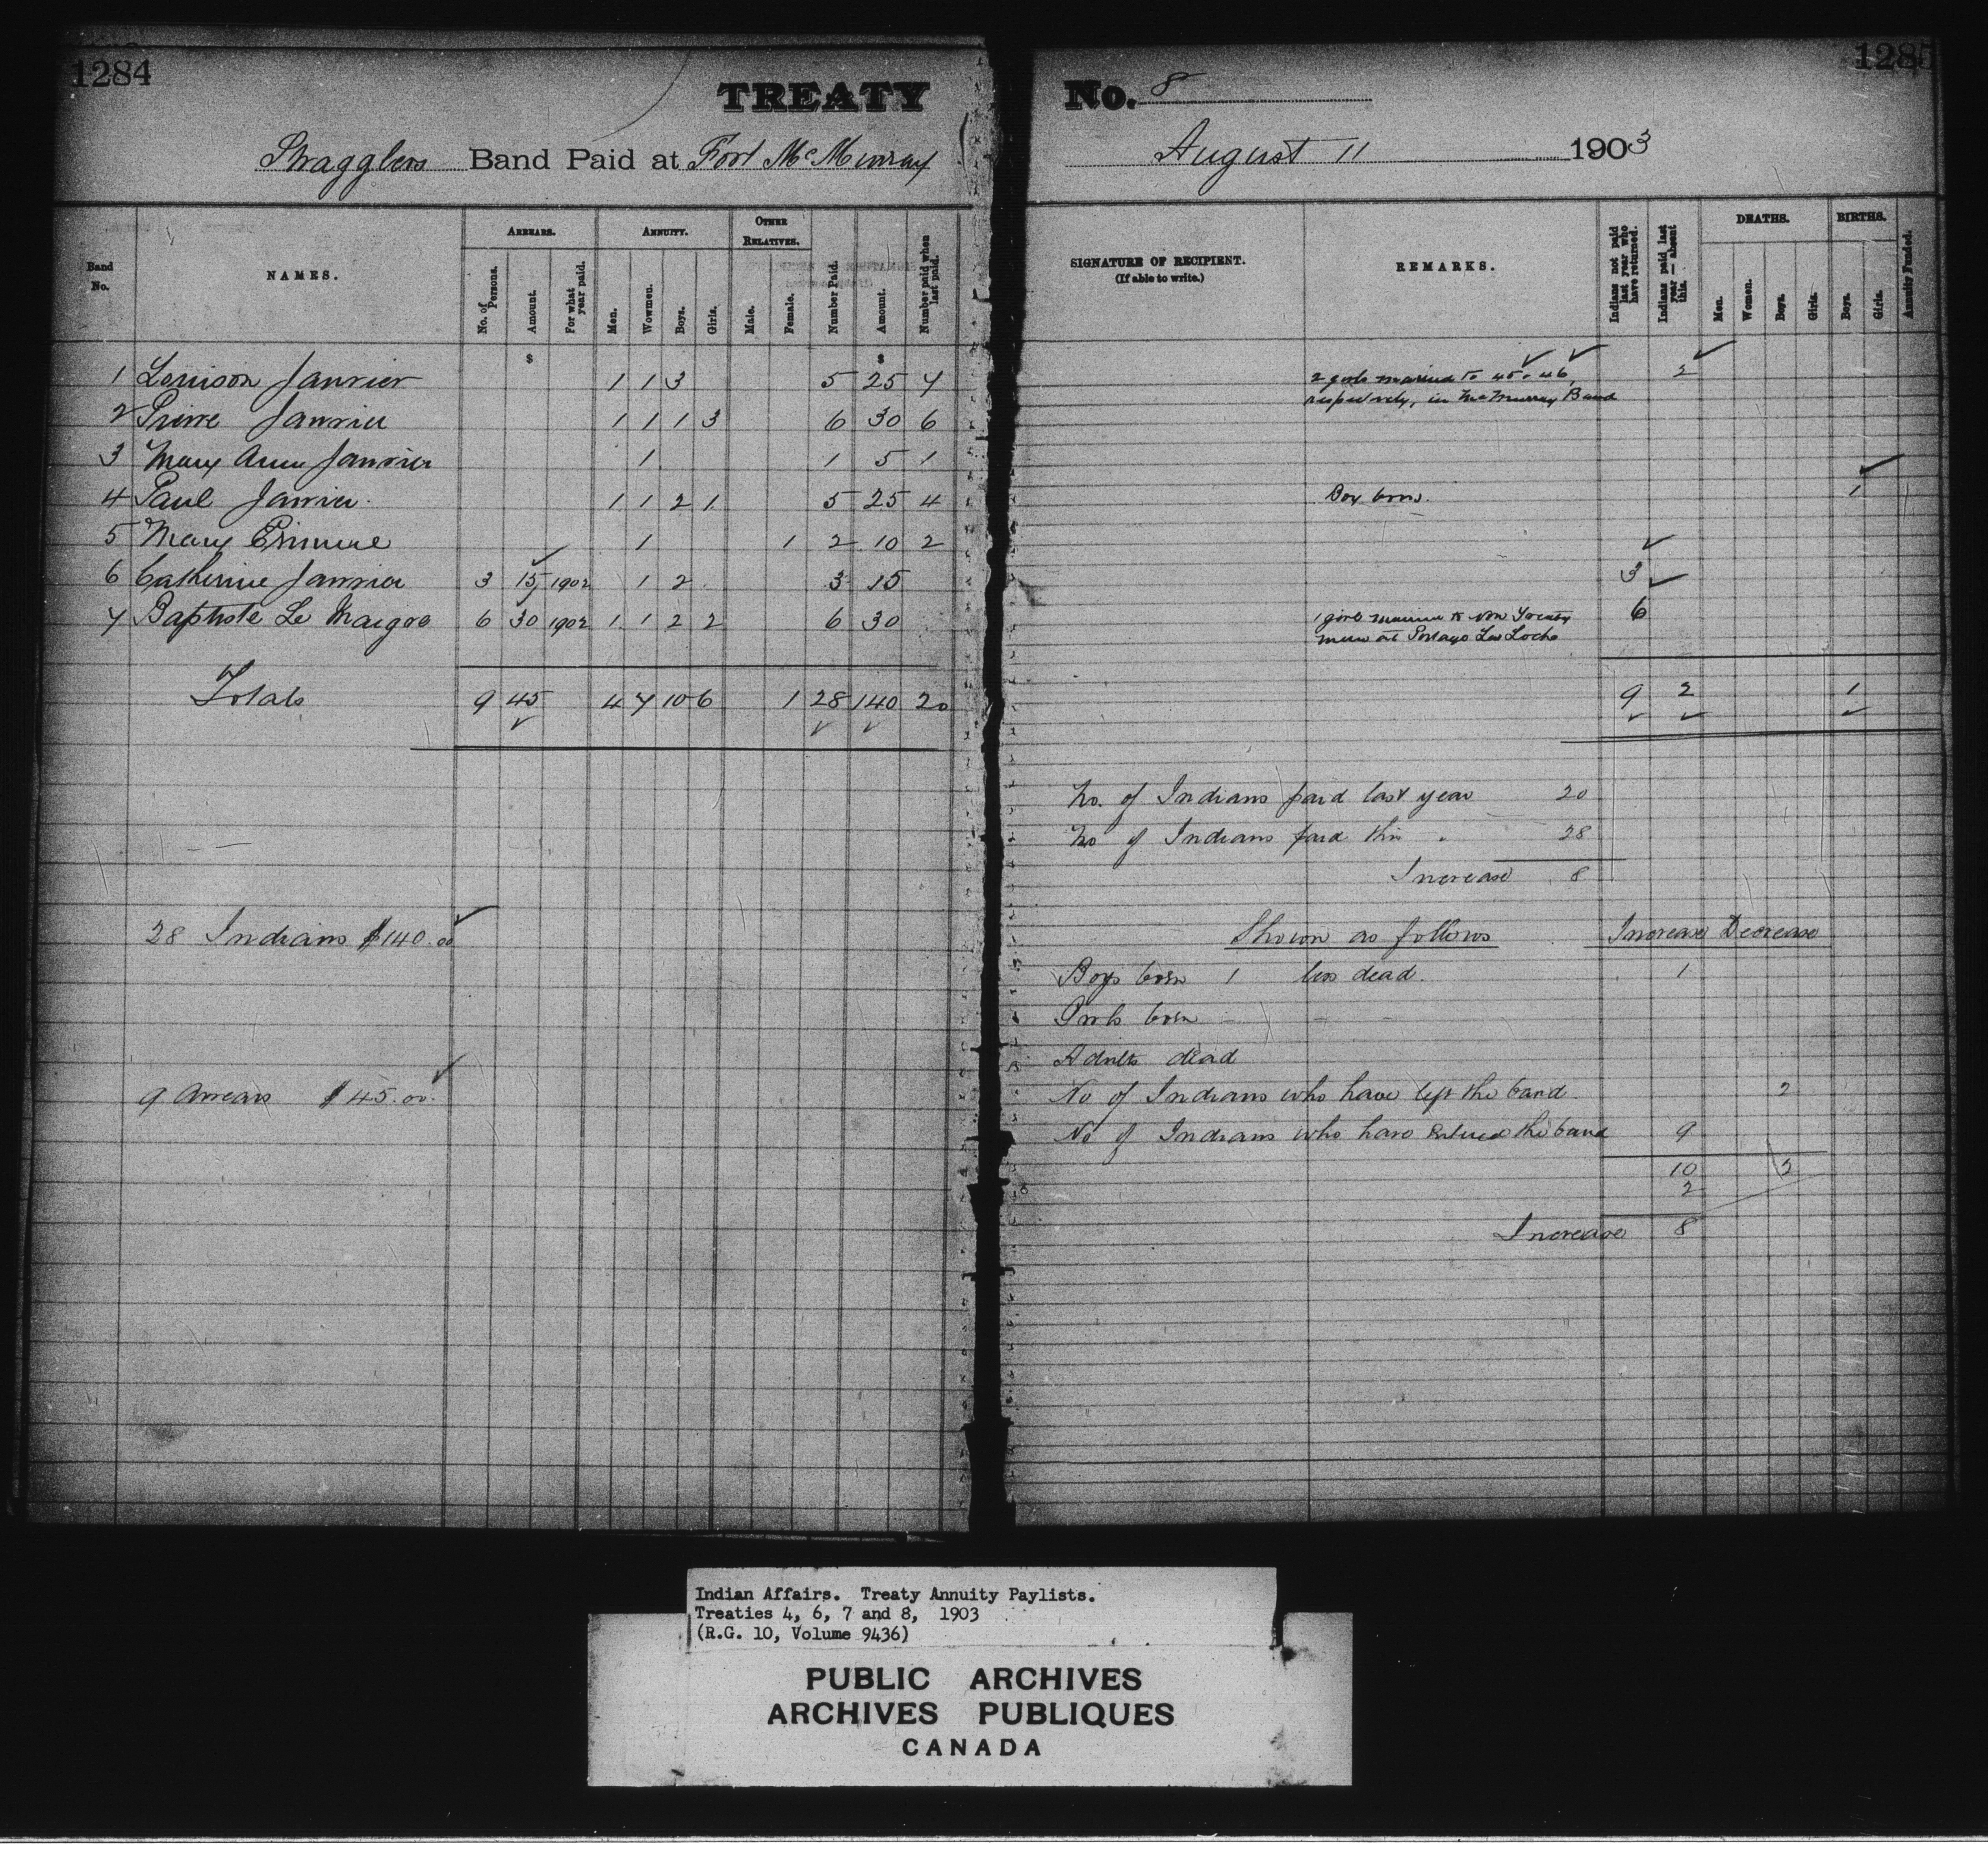 1284
TREATY
Stragglers Band Paid at Fort McMurray
Band No. NAMES. ARREARS. ANNUITY. OTHER RELATIVES.
No. of Persons. Amount. For what year paid. Men. Wowmen. Boys. Girls. Male. Female. Number Paid. Amount. Number paid when last paid.
$ $
1 Louison Janvier 1 1 3 5 25 7
2 Pierre Janvier 1 1 1 3 6 30 6
3 Mary Ann Janvier 1 1 5 1
4 Paul Janvier 1 1 2 1 5 25 4
5 Mary 1 1 2 10 2
6 Catherine Janvier 3 15 1902 1 2 3 15
7 Baptiste Le Maigre 6 30 1902 1 1 2 2 6 30
Totals 9 45 4 7 10 6 1 28 140 20
28 Indians $140.00
9 Arrears $45.00
1285
No. 8
August 11 1903
SIGNATURE OF RECIPIENT.
(If able to write.)
REMARKS.
Indians not paid last year who have returned. Indians paid last year — absent this. DEATHS. BIRTHS. Annuity Funded.
Men. Women. Boys. Girls. Boys. Girls.
2 girls married to 45 & 46 2
respectively, in McMurray Band
Boy born. 1
3
1 girl married to Non Treaty 6
man at Portage La Loche
9 2 1
No. of Indians paid last year 20
No of Indians paid this " 28
Increase 8
Shown as follows Increase Decrease
Boys born 1 less dead. 1
Girls born - - -
Adults dead
No of Indians who have left the band. 2
No of Indians who have the band 9
10 2
2
Increase 8
Indian Affairs. Treaty Annuity Paylists.
Treaties 4, 6, 7 and 8, 1903
(R.G. 10, Volume 9436)
PUBLIC ARCHIVES
ARCHIVES PUBLIQUES
CANADA